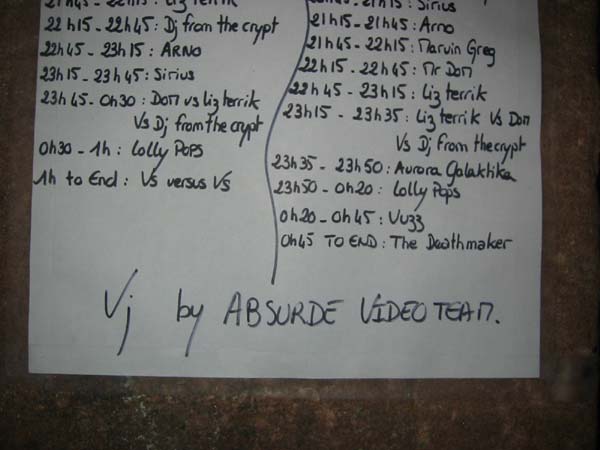 21h45 - 22h15 : Liz terrik
22h15 - 22h45 : Dj from the crypt
22h45 - 23h15 : ARNO
23h15 - 23h45 : Sirius
23h45 - 0h30 : Dom vs Liz terrik
Vs Dj from the crypt
0h30 - 1h : Lolly Pops
1h to End : Vs versus Vs
21h15 : Sirius
21h15 - 21h45 : Arno
21h45 - 22h15 : Marvin Greg
22h15 - 22h45 : Mr Dom
22h45 - 23h15 : Liz terrik
23h15 - 23h35 : Liz terrik Vs Dom
Vs Dj from the crypt
23h35 - 23h50 : Aurora Galaktika
23h50 - 0h20 : Lolly Pops
0h20 - 0h45 : Vuzz
0h45 TO END : The Deathmaker
Vj by ABSURDE VIDEO TEAM.